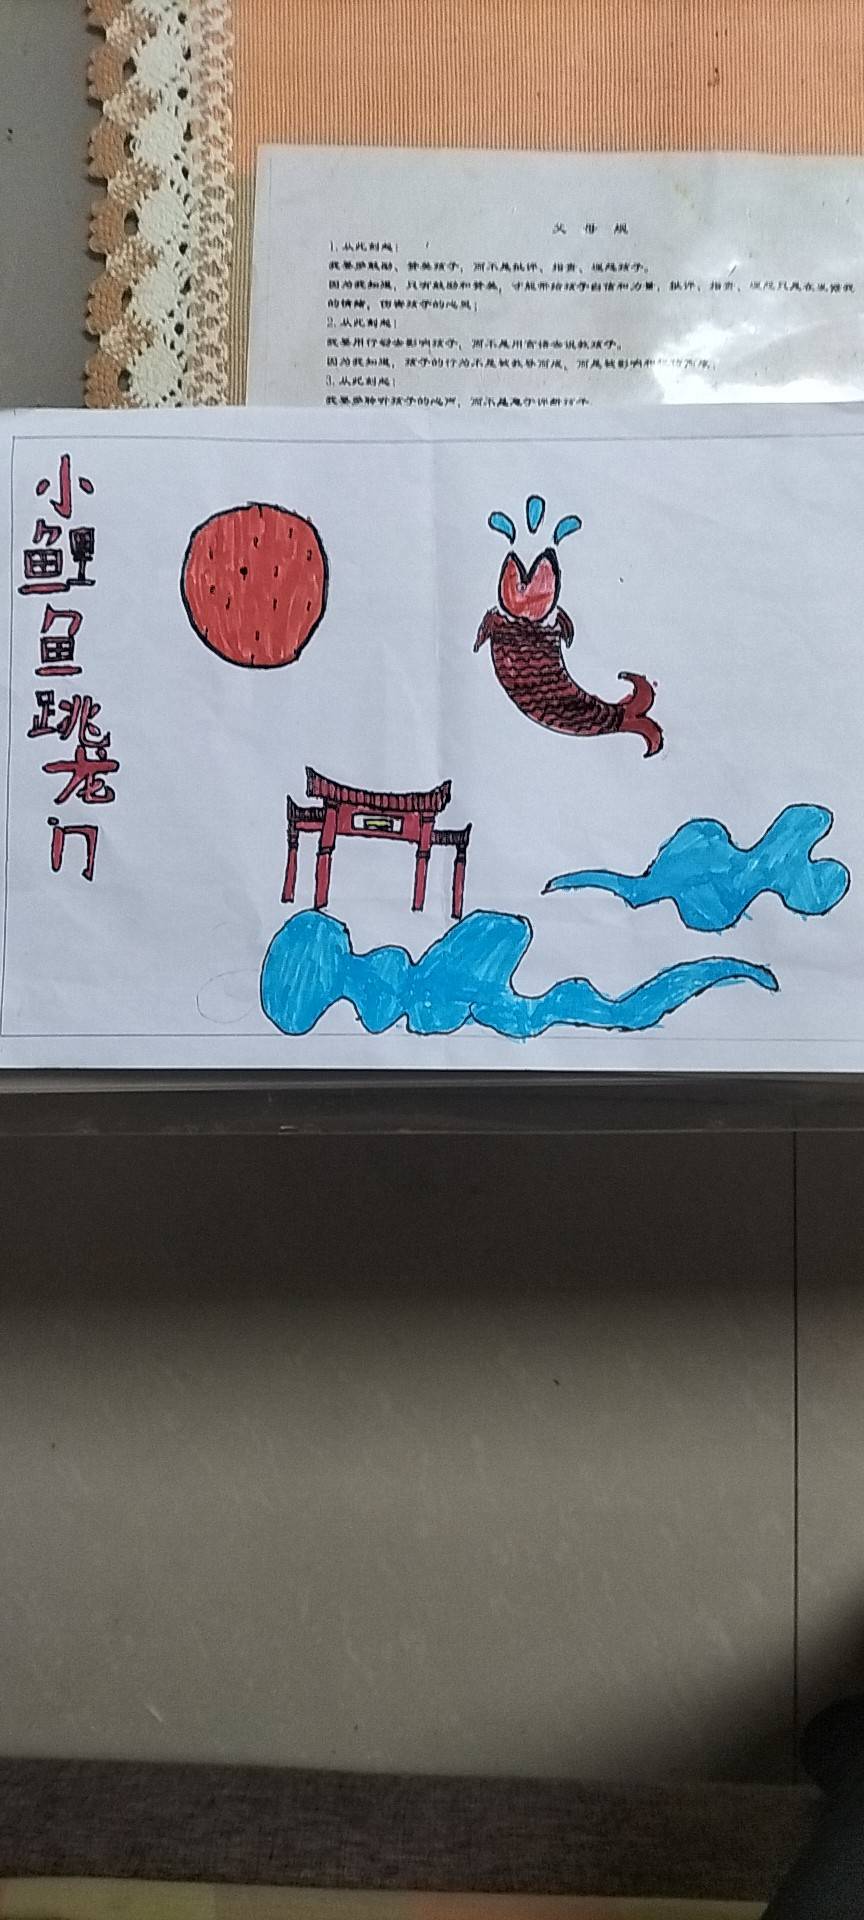 父 母 规
1. 从此刻起：
我要多鼓励、赞美孩子，而不是批评、指责、埋怨孩子。
因为我知道，只有鼓励和赞美，才能带给孩子自信和力量，批评、指责、埋怨只是在发泄我
的情绪，伤害孩子的心灵；
2. 从此刻起：
我要用行动去影响孩子，而不是用言语去说教孩子。
因为我知道，孩子的行为不是被教导而成，而是被影响和
3. 从此刻起：
我要多聆听孩子的心声，而不是急于评断孩子
小鲤鱼跳龙门